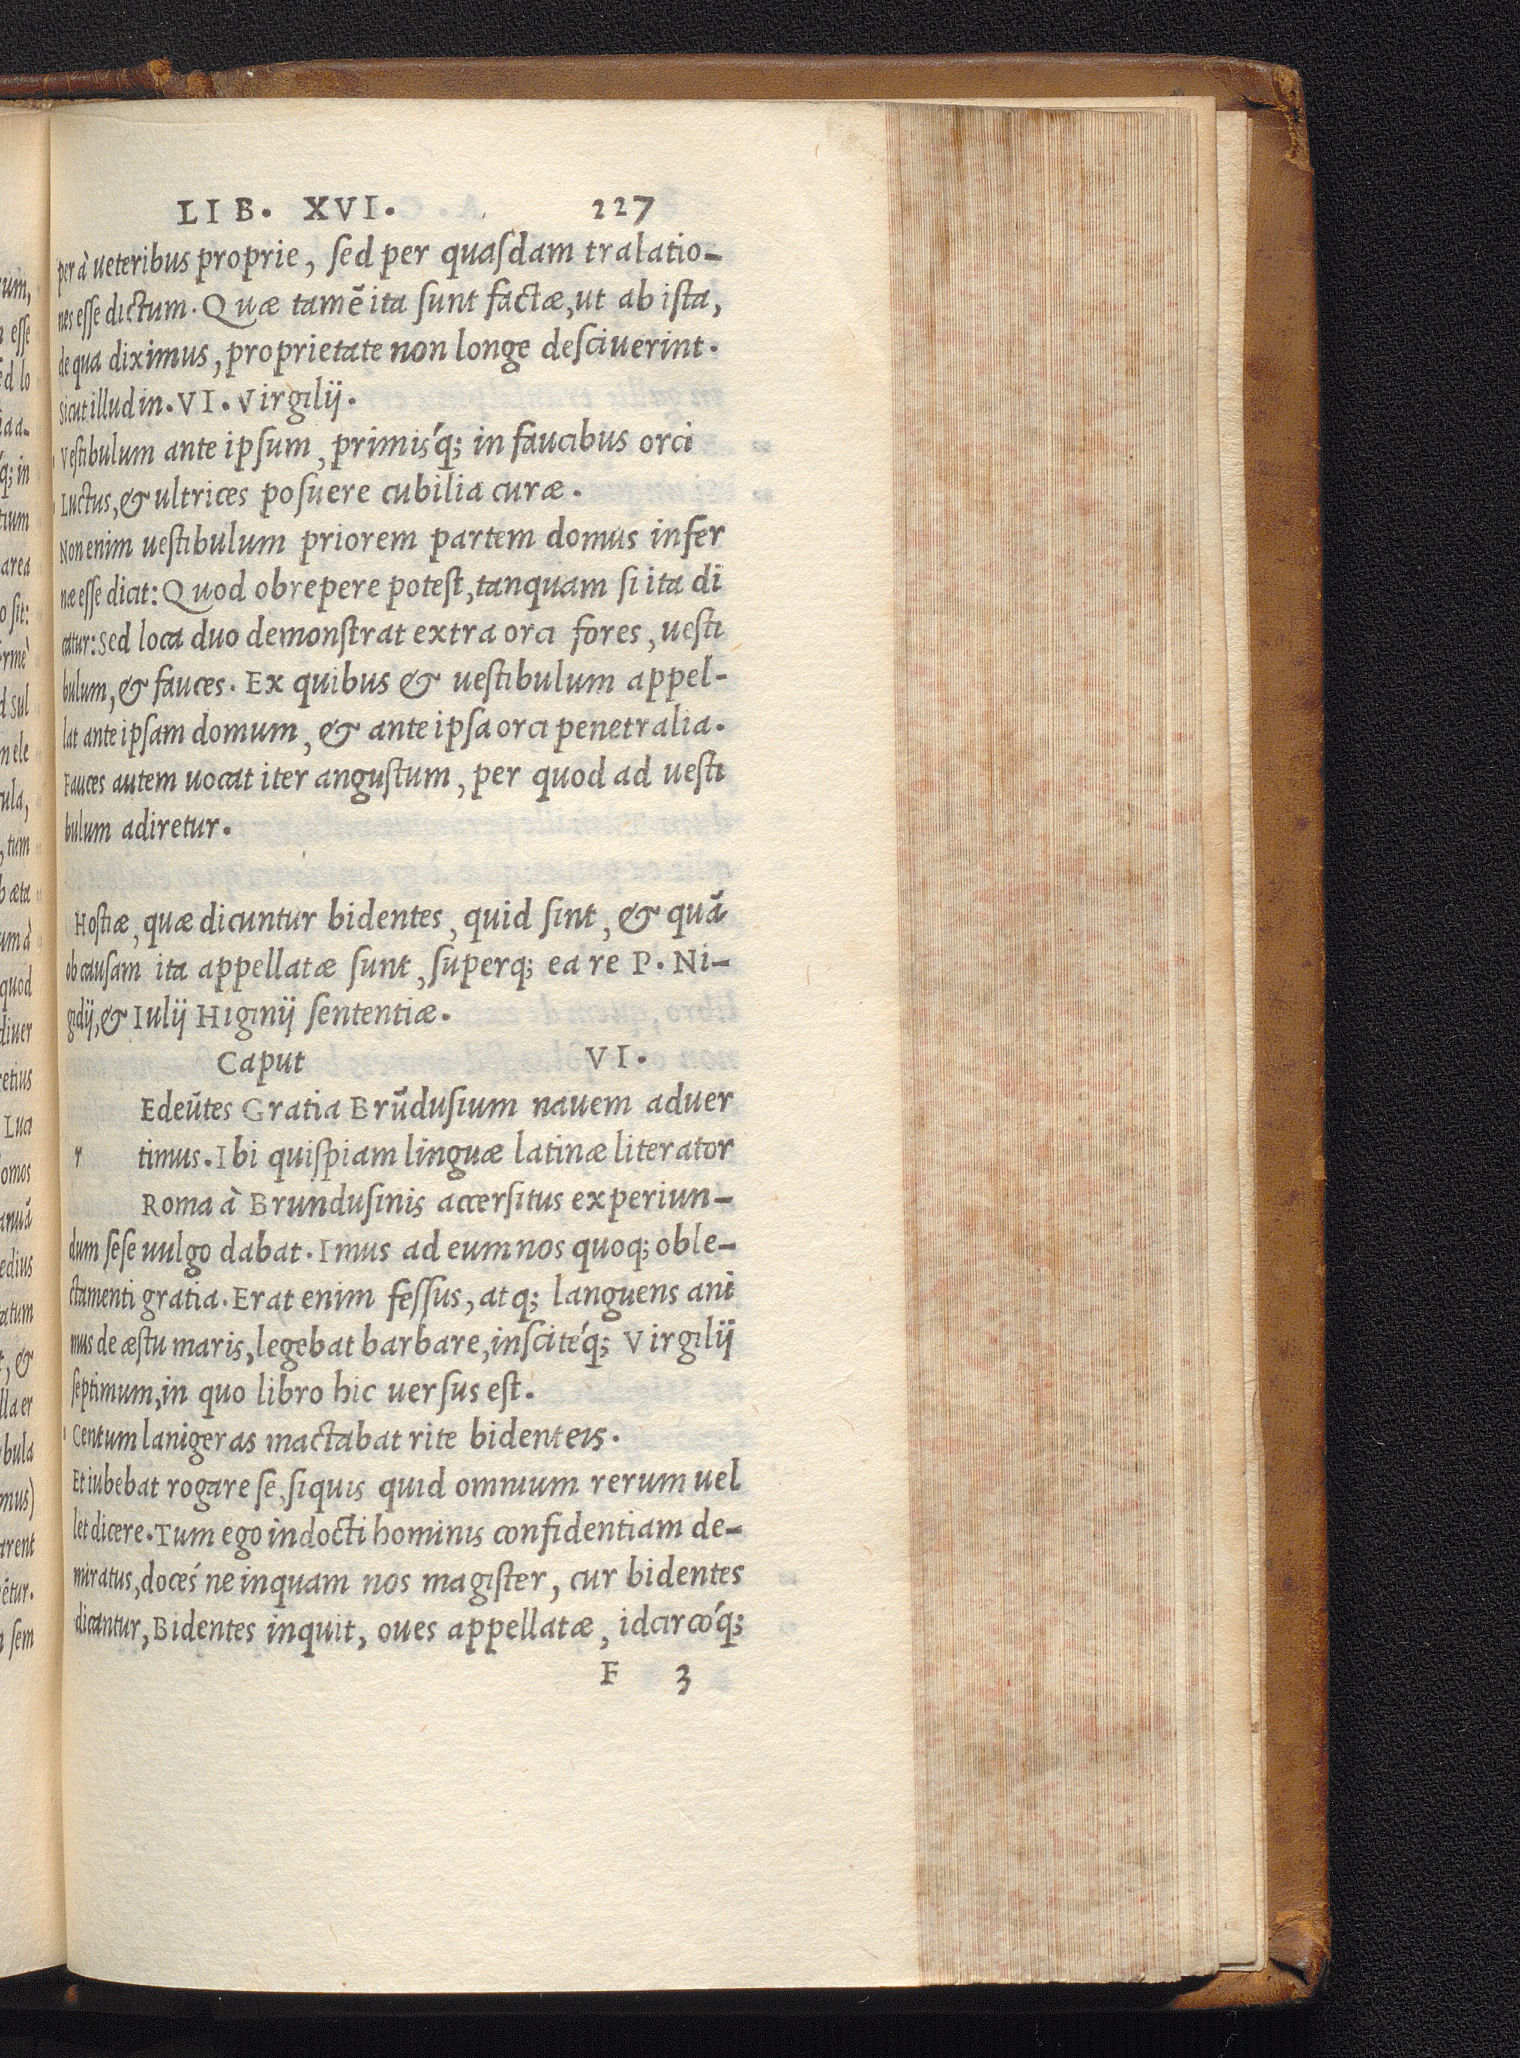 LIB. XVI. 227
per à ueteribus proprie, sed per quasdam tralatio-
nes esse dictum. Quæ tamẽ ita sunt factæ, ut ab ista,
de qua diximus, proprietate non longe desciuerint.
Sicut illud in. VI. Virgilij.
Vestibulum ante ipsum, primis´q; in faucibus orci
Luctus, & ultrices posuere cubilia curæ.
Non enim uestibulum priorem partem domus infer
næ esse dicit: Quod obrepere potest, tanquam si ita di
catur: Sed loca duo demonstrat extra orci fores, uesti
bulum, & fauces. Ex quibus & uestibulum appel-
lat ante ipsam domum, & ante ipsa orci penetralia.
Fauces autem uocat iter angustum, per quod ad uesti
bulum adiretur.
Hostiæ, quæ dicuntur bidentes, quid sint, & quã
ob causam ita appellatæ sunt, superq; ea re P. Ni-
gidij, & Iulij Higinij sententiæ.
Caput VI.
Edeũtes Gratia Brũdusium nauem aduer
r timus. Ibi quispiam linguæ latinæ literator
Roma à Brundusinis accersitus experiun-
dum sese uulgo dabat. Imus ad eum nos quoq; oble-
ctamenti gratia. Erat enim fessus, atq; languens ani
mus de æstu maris, legebat barbare, inscité´q; Virgilij
septimum, in quo libro hic uersus est.
Centum lanigeras mactabat rite bidenteis.
Et iubebat rogare se, siquis quid omnium rerum uel
let dicere. Tum ego indocti hominis confidentiam de-
miratus, docés´ ne inquam nos magister, cur bidentes
dicantur, Bidentes inquit, oues appellatæ, idcircó´q;
F 3